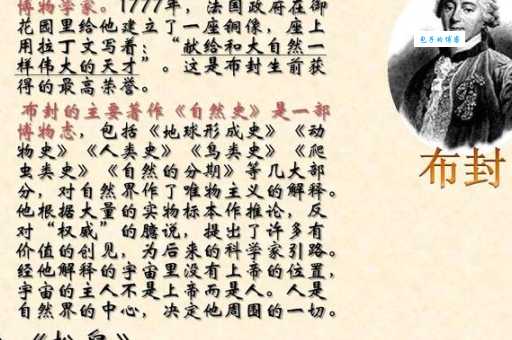 博物学家。1777年，法国政府在御
花园里给他建立了一座铜像，座上
用拉丁文写着：“献给和大自然一
样伟大的天才”。这是布封生前获
得的最高荣誉。
布封的主要著作《自然史》是一部
博物志，包括《地球形成史》《动
物史》《人类史》《鸟类史》《爬
虫类史》《自然的分期》等几大部
分，对自然界作了唯物主义的解释。
他根据大量的实物标本作推论，反
对“权威”的臆说，提出了许多有
价值的创见，为后来的科学家引路。
经他解释的宇宙里没有上帝的位置，
宇宙的主人不是上帝而是人。人是
自然界的中心，决定他周围的一切。
布封